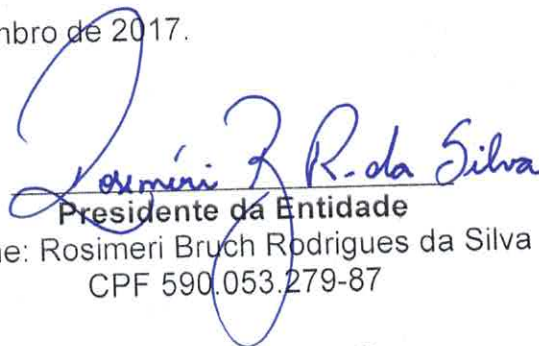 mbro de 2017.
Rosiméri B R. da Silva
Presidente da Entidade
ne: Rosimeri Bruch Rodrigues da Silva
CPF 590.053.279-87